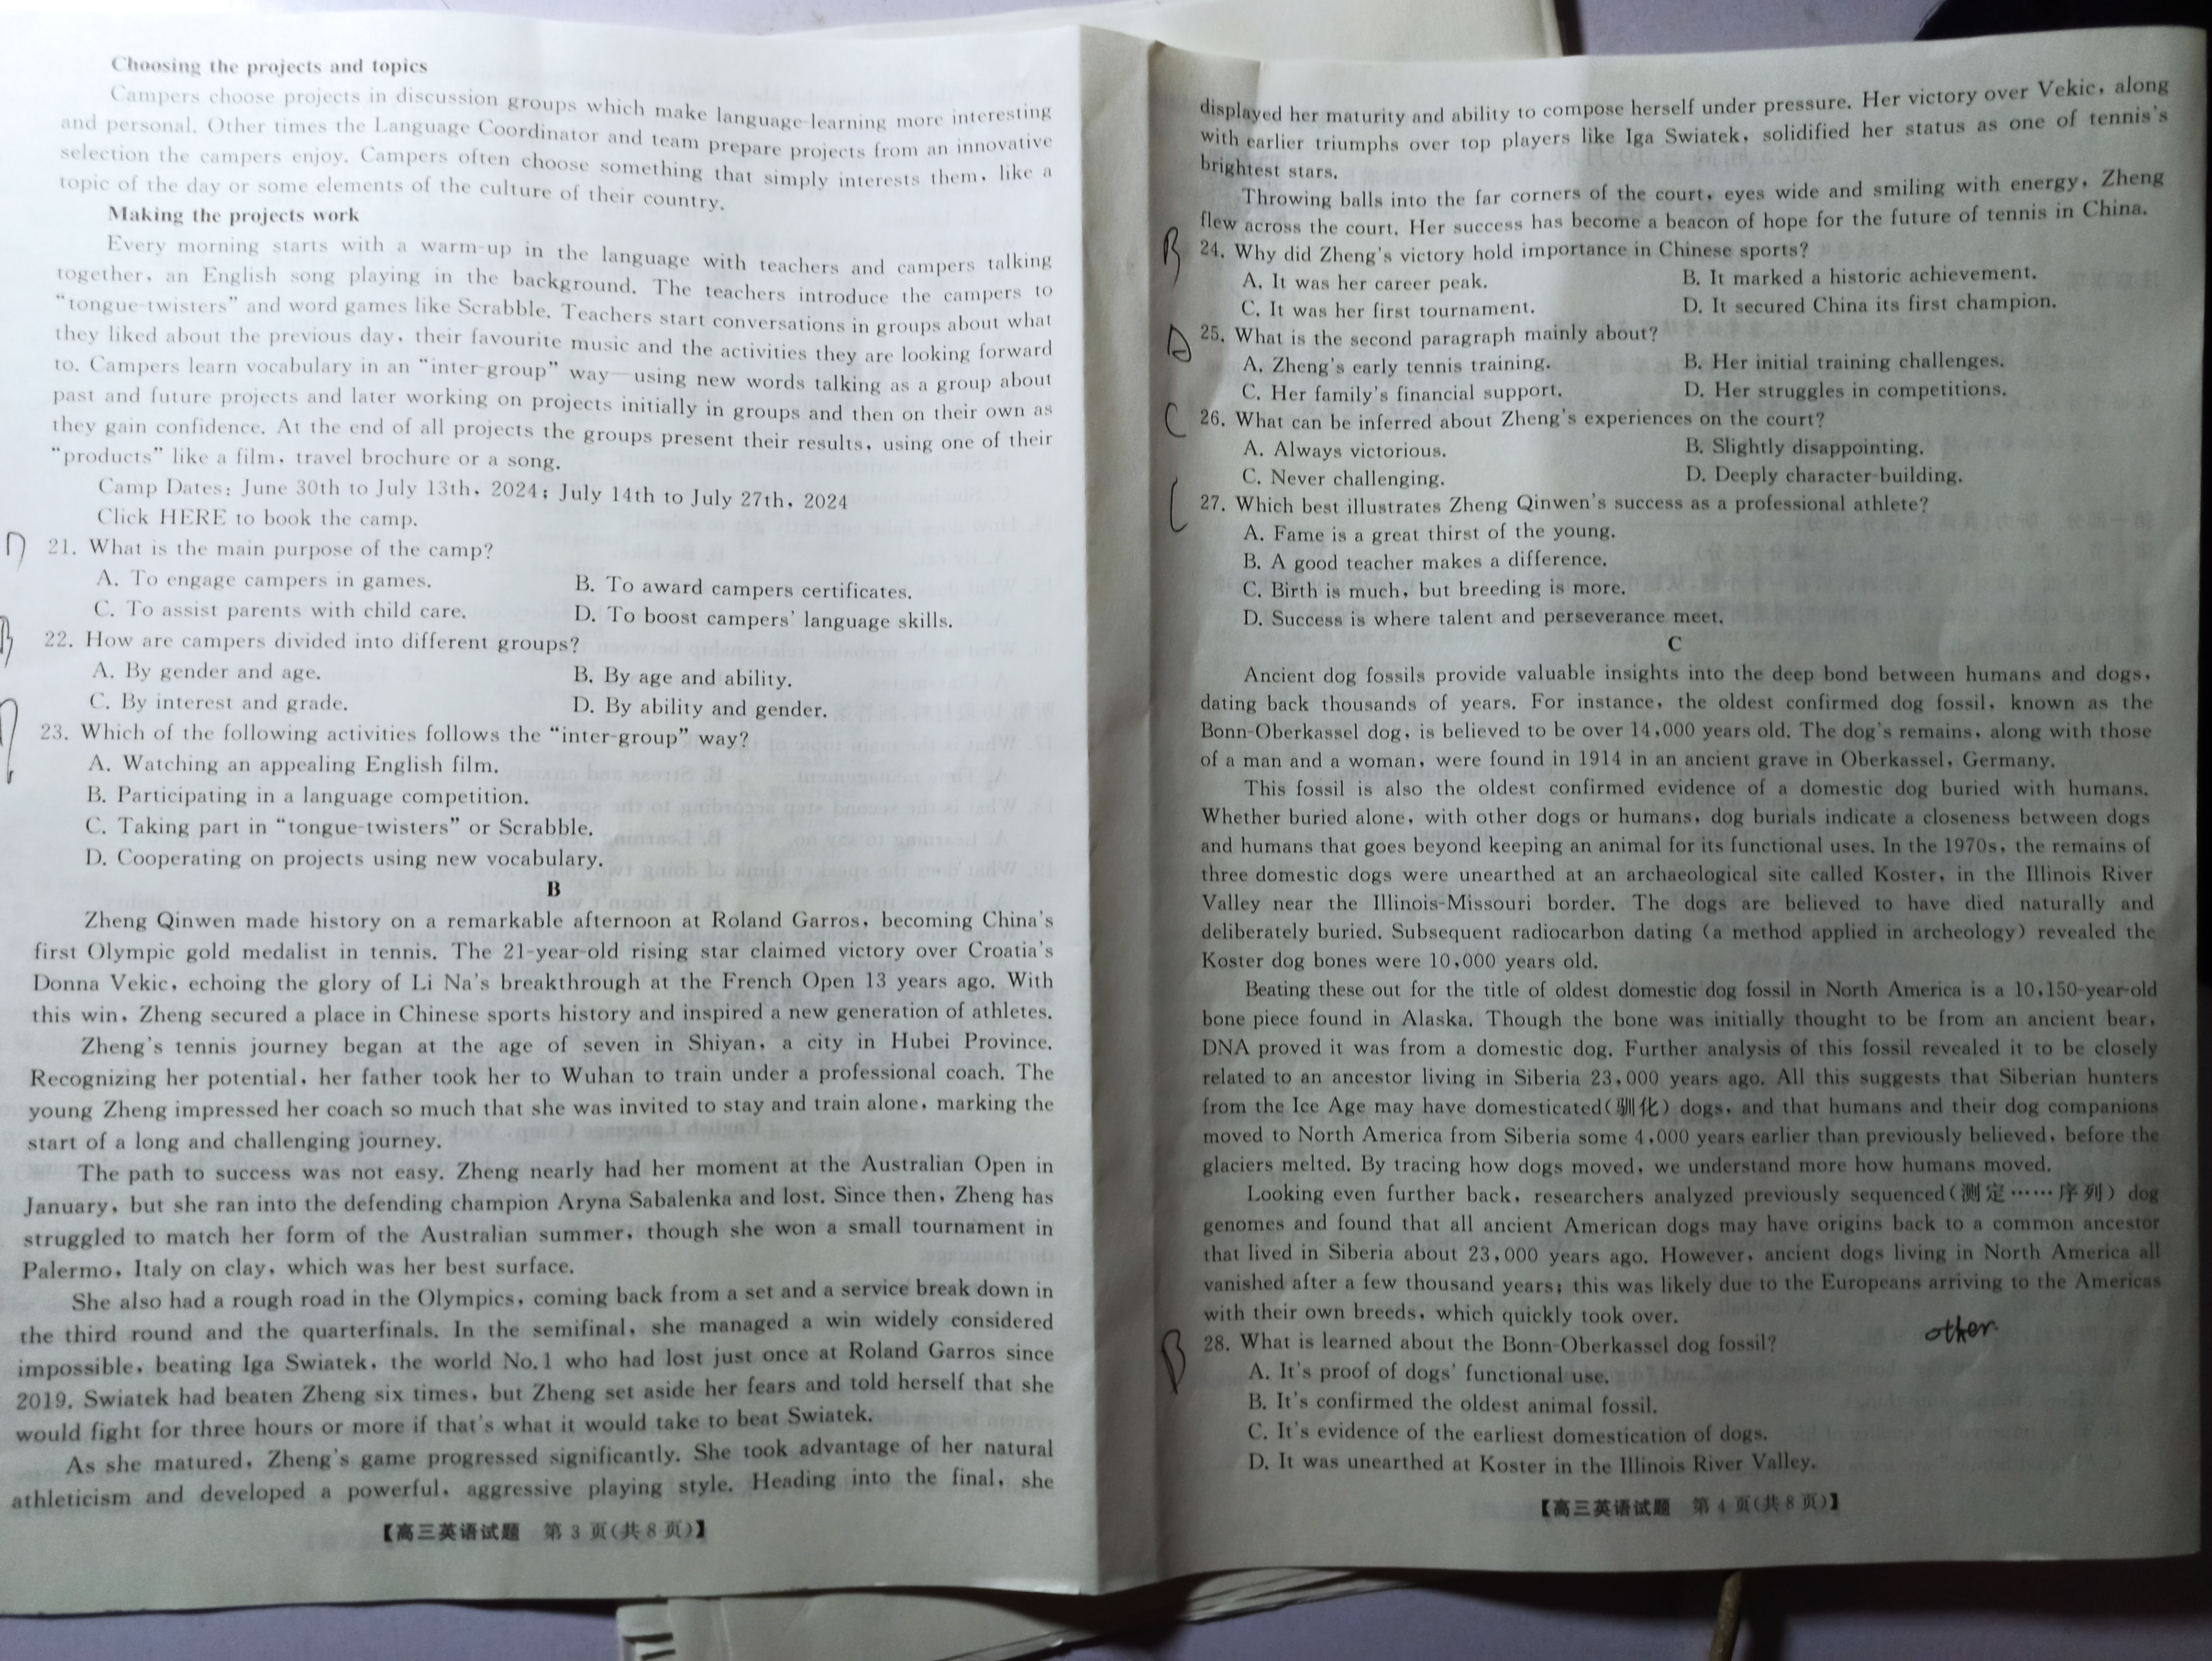 Choosing the projects and topics
Campers choose projects in discussion groups which make language-learning more interesting
and personal. Other times the Language Coordinator and team prepare projects from an innovative
selection the campers enjoy. Campers often choose something that simply interests them, like a
topic of the day or some elements of the culture of their country.
Making the projects work
Every morning starts with a warm-up in the language with teachers and campers talking
together, an English song playing in the background. The teachers introduce the campers to
“tongue-twisters” and word games like Scrabble. Teachers start conversations in groups about what
they liked about the previous day, their favourite music and the activities they are looking forward
to. Campers learn vocabulary in an “inter-group” way—using new words talking as a group about
past and future projects and later working on projects initially in groups and then on their own as
they gain confidence. At the end of all projects the groups present their results, using one of their
“products” like a film, travel brochure or a song.
Camp Dates: June 30th to July 13th, 2024; July 14th to July 27th, 2024
Click HERE to book the camp.
D 21. What is the main purpose of the camp?
A. To engage campers in games. B. To award campers certificates.
C. To assist parents with child care. D. To boost campers' language skills.
B 22. How are campers divided into different groups?
A. By gender and age. B. By age and ability.
C. By interest and grade. D. By ability and gender.
23. Which of the following activities follows the “inter-group” way?
A. Watching an appealing English film.
B. Participating in a language competition.
C. Taking part in “tongue-twisters” or Scrabble.
D. Cooperating on projects using new vocabulary.
B
Zheng Qinwen made history on a remarkable afternoon at Roland Garros, becoming China's
first Olympic gold medalist in tennis. The 21-year-old rising star claimed victory over Croatia's
Donna Vekic, echoing the glory of Li Na's breakthrough at the French Open 13 years ago. With
this win, Zheng secured a place in Chinese sports history and inspired a new generation of athletes.
Zheng's tennis journey began at the age of seven in Shiyan, a city in Hubei Province.
Recognizing her potential, her father took her to Wuhan to train under a professional coach. The
young Zheng impressed her coach so much that she was invited to stay and train alone, marking the
start of a long and challenging journey.
The path to success was not easy. Zheng nearly had her moment at the Australian Open in
January, but she ran into the defending champion Aryna Sabalenka and lost. Since then, Zheng has
struggled to match her form of the Australian summer, though she won a small tournament in
Palermo, Italy on clay, which was her best surface.
She also had a rough road in the Olympics, coming back from a set and a service break down in
the third round and the quarterfinals. In the semifinal, she managed a win widely considered
impossible, beating Iga Swiatek, the world No.1 who had lost just once at Roland Garros since
2019. Swiatek had beaten Zheng six times, but Zheng set aside her fears and told herself that she
would fight for three hours or more if that's what it would take to beat Swiatek.
As she matured, Zheng's game progressed significantly. She took advantage of her natural
athleticism and developed a powerful, aggressive playing style. Heading into the final, she
【高三英语试题 第 3 页(共 8 页)】
displayed her maturity and ability to compose herself under pressure. Her victory over Vekic, along
with earlier triumphs over top players like Iga Swiatek, solidified her status as one of tennis's
brightest stars.
Throwing balls into the far corners of the court, eyes wide and smiling with energy, Zheng
flew across the court. Her success has become a beacon of hope for the future of tennis in China.
B 24. Why did Zheng's victory hold importance in Chinese sports?
A. It was her career peak. B. It marked a historic achievement.
C. It was her first tournament. D. It secured China its first champion.
25. What is the second paragraph mainly about?
A. Zheng's early tennis training. B. Her initial training challenges.
C. Her family's financial support. D. Her struggles in competitions.
C 26. What can be inferred about Zheng's experiences on the court?
A. Always victorious. B. Slightly disappointing.
C. Never challenging. D. Deeply character-building.
C 27. Which best illustrates Zheng Qinwen's success as a professional athlete?
A. Fame is a great thirst of the young.
B. A good teacher makes a difference.
C. Birth is much, but breeding is more.
D. Success is where talent and perseverance meet.
C
Ancient dog fossils provide valuable insights into the deep bond between humans and dogs,
dating back thousands of years. For instance, the oldest confirmed dog fossil, known as the
Bonn-Oberkassel dog, is believed to be over 14,000 years old. The dog's remains, along with those
of a man and a woman, were found in 1914 in an ancient grave in Oberkassel, Germany.
This fossil is also the oldest confirmed evidence of a domestic dog buried with humans.
Whether buried alone, with other dogs or humans, dog burials indicate a closeness between dogs
and humans that goes beyond keeping an animal for its functional uses. In the 1970s, the remains of
three domestic dogs were unearthed at an archaeological site called Koster, in the Illinois River
Valley near the Illinois-Missouri border. The dogs are believed to have died naturally and
deliberately buried. Subsequent radiocarbon dating (a method applied in archeology) revealed the
Koster dog bones were 10,000 years old.
Beating these out for the title of oldest domestic dog fossil in North America is a 10,150-year-old
bone piece found in Alaska. Though the bone was initially thought to be from an ancient bear,
DNA proved it was from a domestic dog. Further analysis of this fossil revealed it to be closely
related to an ancestor living in Siberia 23,000 years ago. All this suggests that Siberian hunters
from the Ice Age may have domesticated(驯化) dogs, and that humans and their dog companions
moved to North America from Siberia some 4,000 years earlier than previously believed, before the
glaciers melted. By tracing how dogs moved, we understand more how humans moved.
Looking even further back, researchers analyzed previously sequenced(测定……序列) dog
genomes and found that all ancient American dogs may have origins back to a common ancestor
that lived in Siberia about 23,000 years ago. However, ancient dogs living in North America all
vanished after a few thousand years; this was likely due to the Europeans arriving to the Americas
with their own breeds, which quickly took over.
other.
B 28. What is learned about the Bonn-Oberkassel dog fossil?
A. It's proof of dogs' functional use.
B. It's confirmed the oldest animal fossil.
C. It's evidence of the earliest domestication of dogs.
D. It was unearthed at Koster in the Illinois River Valley.
【高三英语试题 第 4 页(共 8 页)】